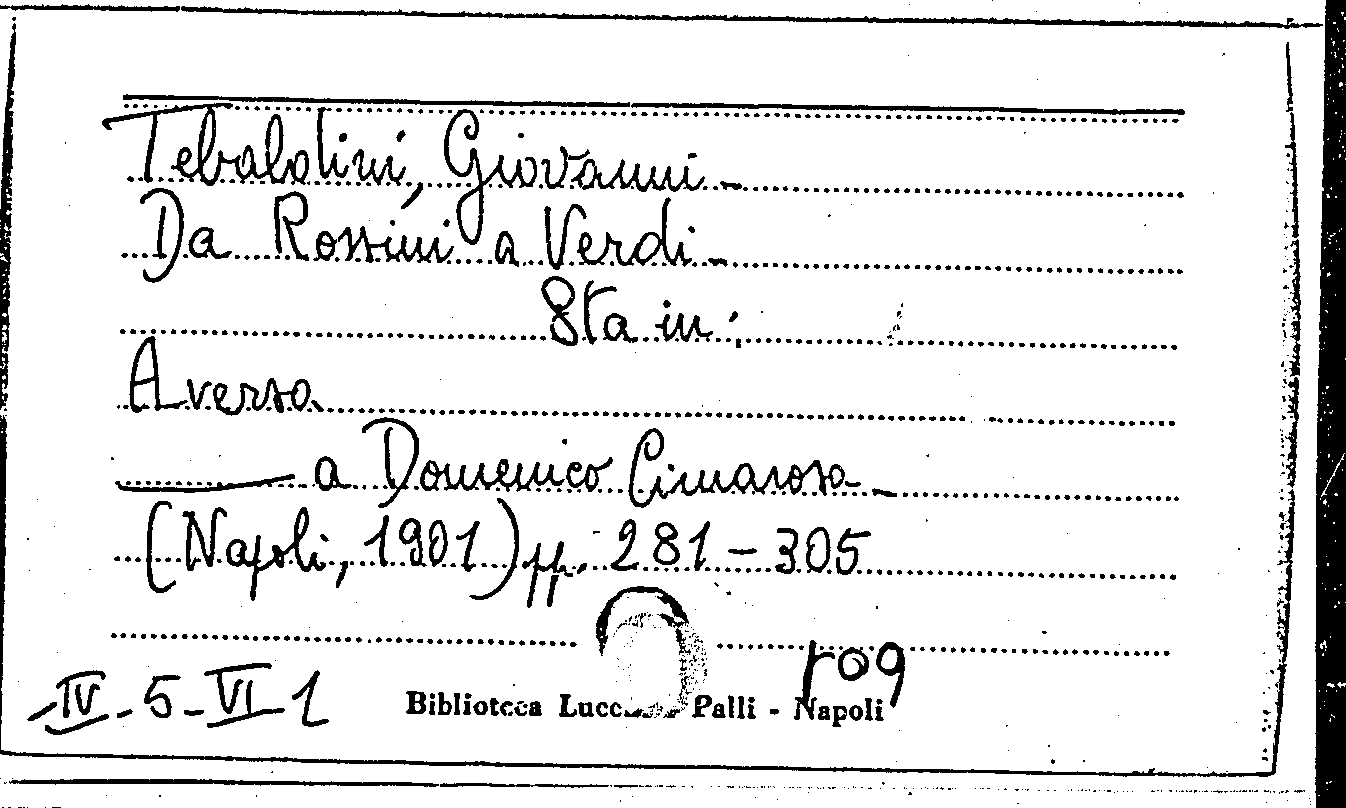 Tebaldini, Giovanni -
Da Rossini a Verdi -
Sta in:
Aversa
a Domenico Cimarosa -
(Napoli, 1901) pp. 281 - 305
rog
IV - 5 - VI - 1
Biblioteca Palli - Napoli